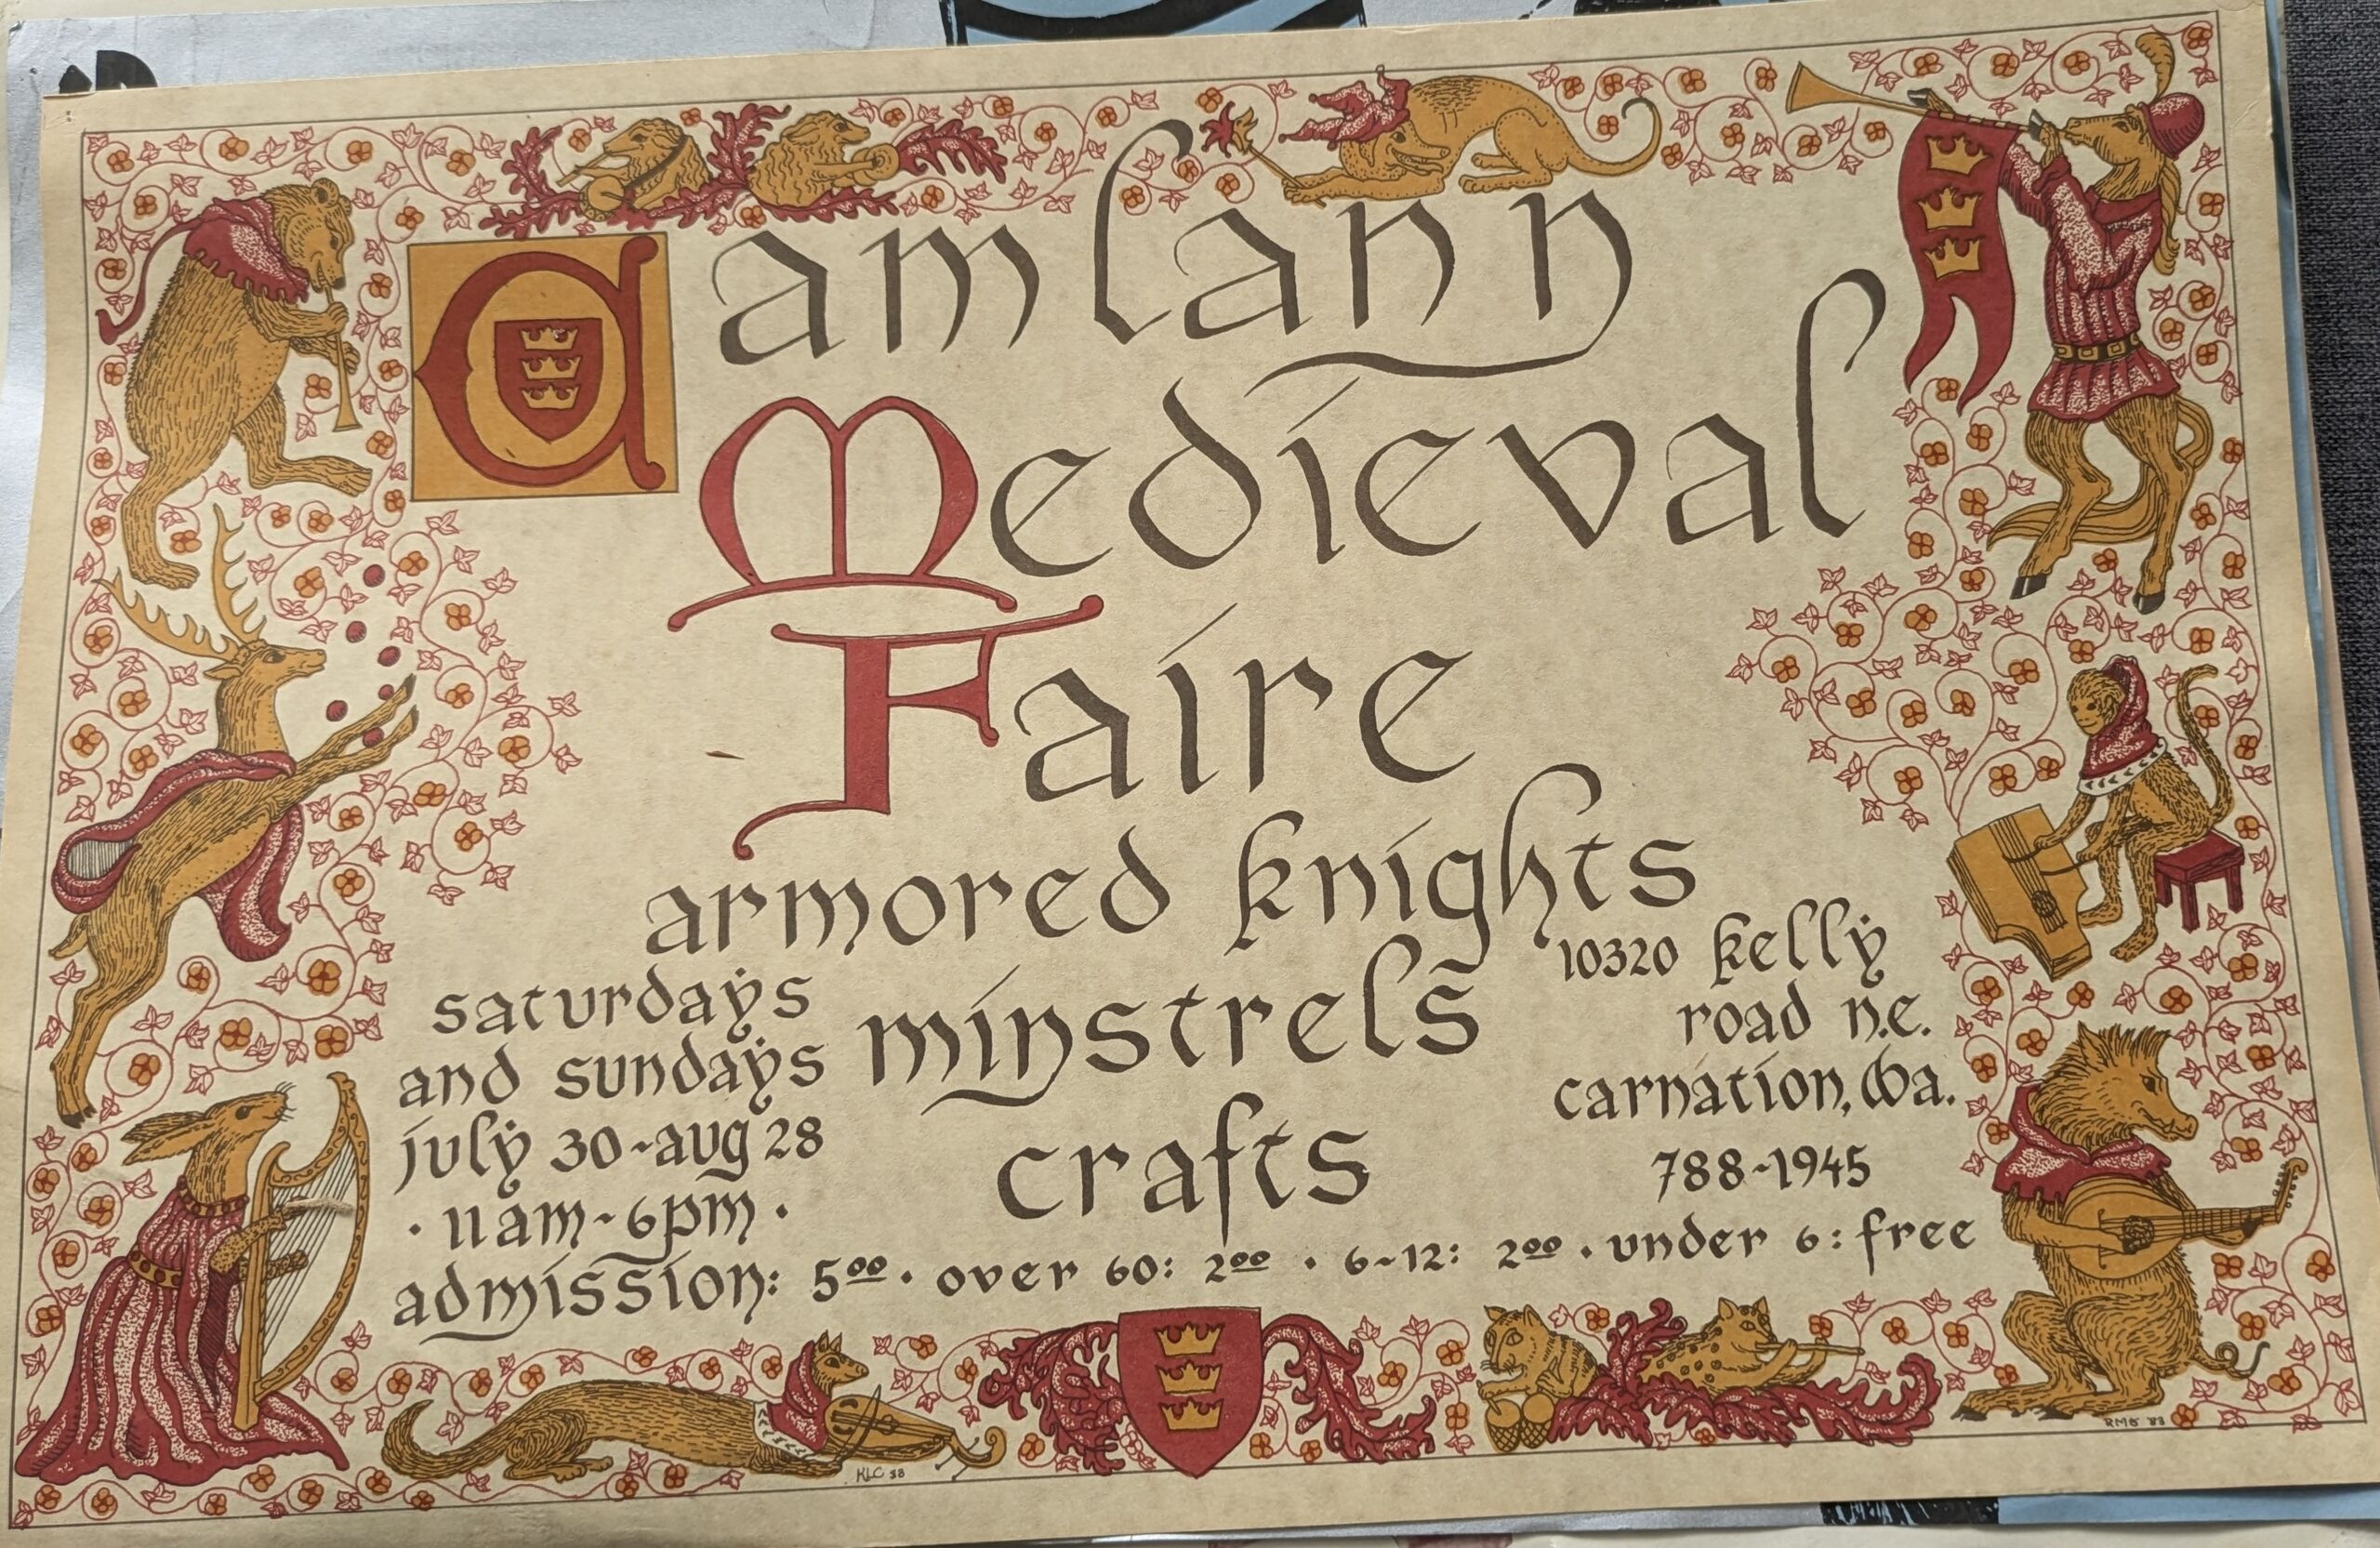 Camlann
Medieval
Faire
armored knights
minstrels
crafts
saturdays
and sundays
july 30-aug 28
· 11am-6pm ·
10320 kelly
road n.e.
carnation, Wa.
788-1945
admission: 5⁰⁰ · over 60: 2⁰⁰ · 6-12: 2⁰⁰ · under 6: free
KLC 88
RMG '88